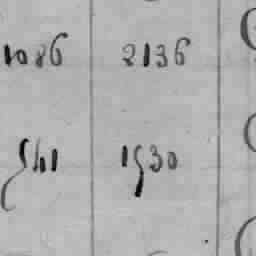 1086 2136
541 1530